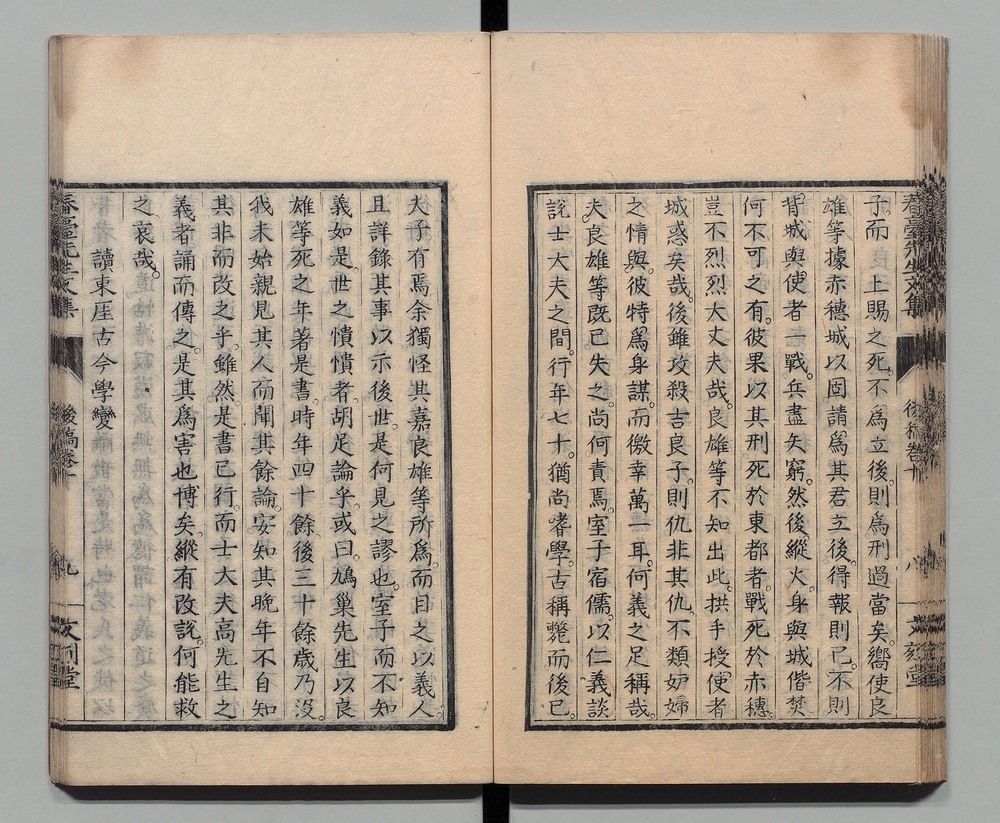 子而上賜之死。不為立後。則為刑過當矣。嚮使良
雄等據赤穗城以固請為其君立後。得報則已。不則
背城與使者一戰。兵盡矢窮。然後縱火。身與城偕焚。
何不可之有。彼果以其刑死於東都者。戰死於赤穗。
豈不烈烈大丈夫哉。良雄等不知出此。拱手授使者
城。惑矣哉。後雖攻殺吉良子。則仇非其仇。不類妒婦
之情與。彼特為身謀。而徼幸萬一耳。何義之足稱哉。
夫良雄等既已失之。尚何責焉。室子宿儒。以仁義談
說士大夫之間。行年七十。猶尚耆學。古稱斃而後已。
春臺先生文集
後稿卷十
八
文刻堂
夫子有焉。余獨怪其嘉良雄等所為。而目之以義人。
且詳錄其事以示後世。是何見之謬也。室子而不知
義如是。世之憒憒者。胡足論乎。或曰。鳩巢先生以良
雄等死之年著是書。時年四十餘。後三十餘歲乃沒。
我未始親見其人而聞其餘論。安知其晚年不自知
其非而改之乎。雖然是書已行。而士大夫高先生之
義者誦而傳之。是其為害也博矣。縱有改說。何能救
之哀哉。
讀東厓古今學變
春臺先生文集
後稿卷十
九
文刻堂